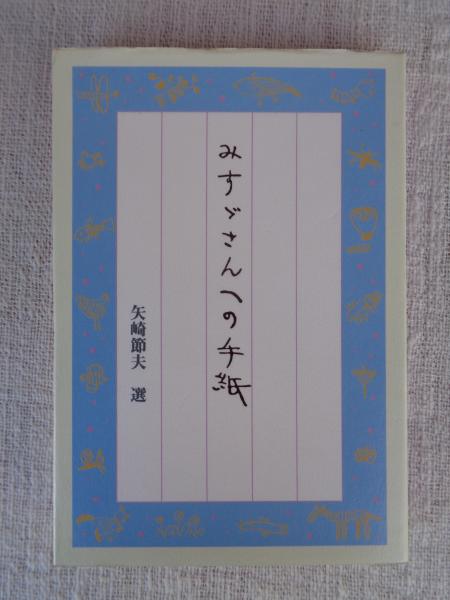 みすゞさんへの手紙
矢崎節夫　選